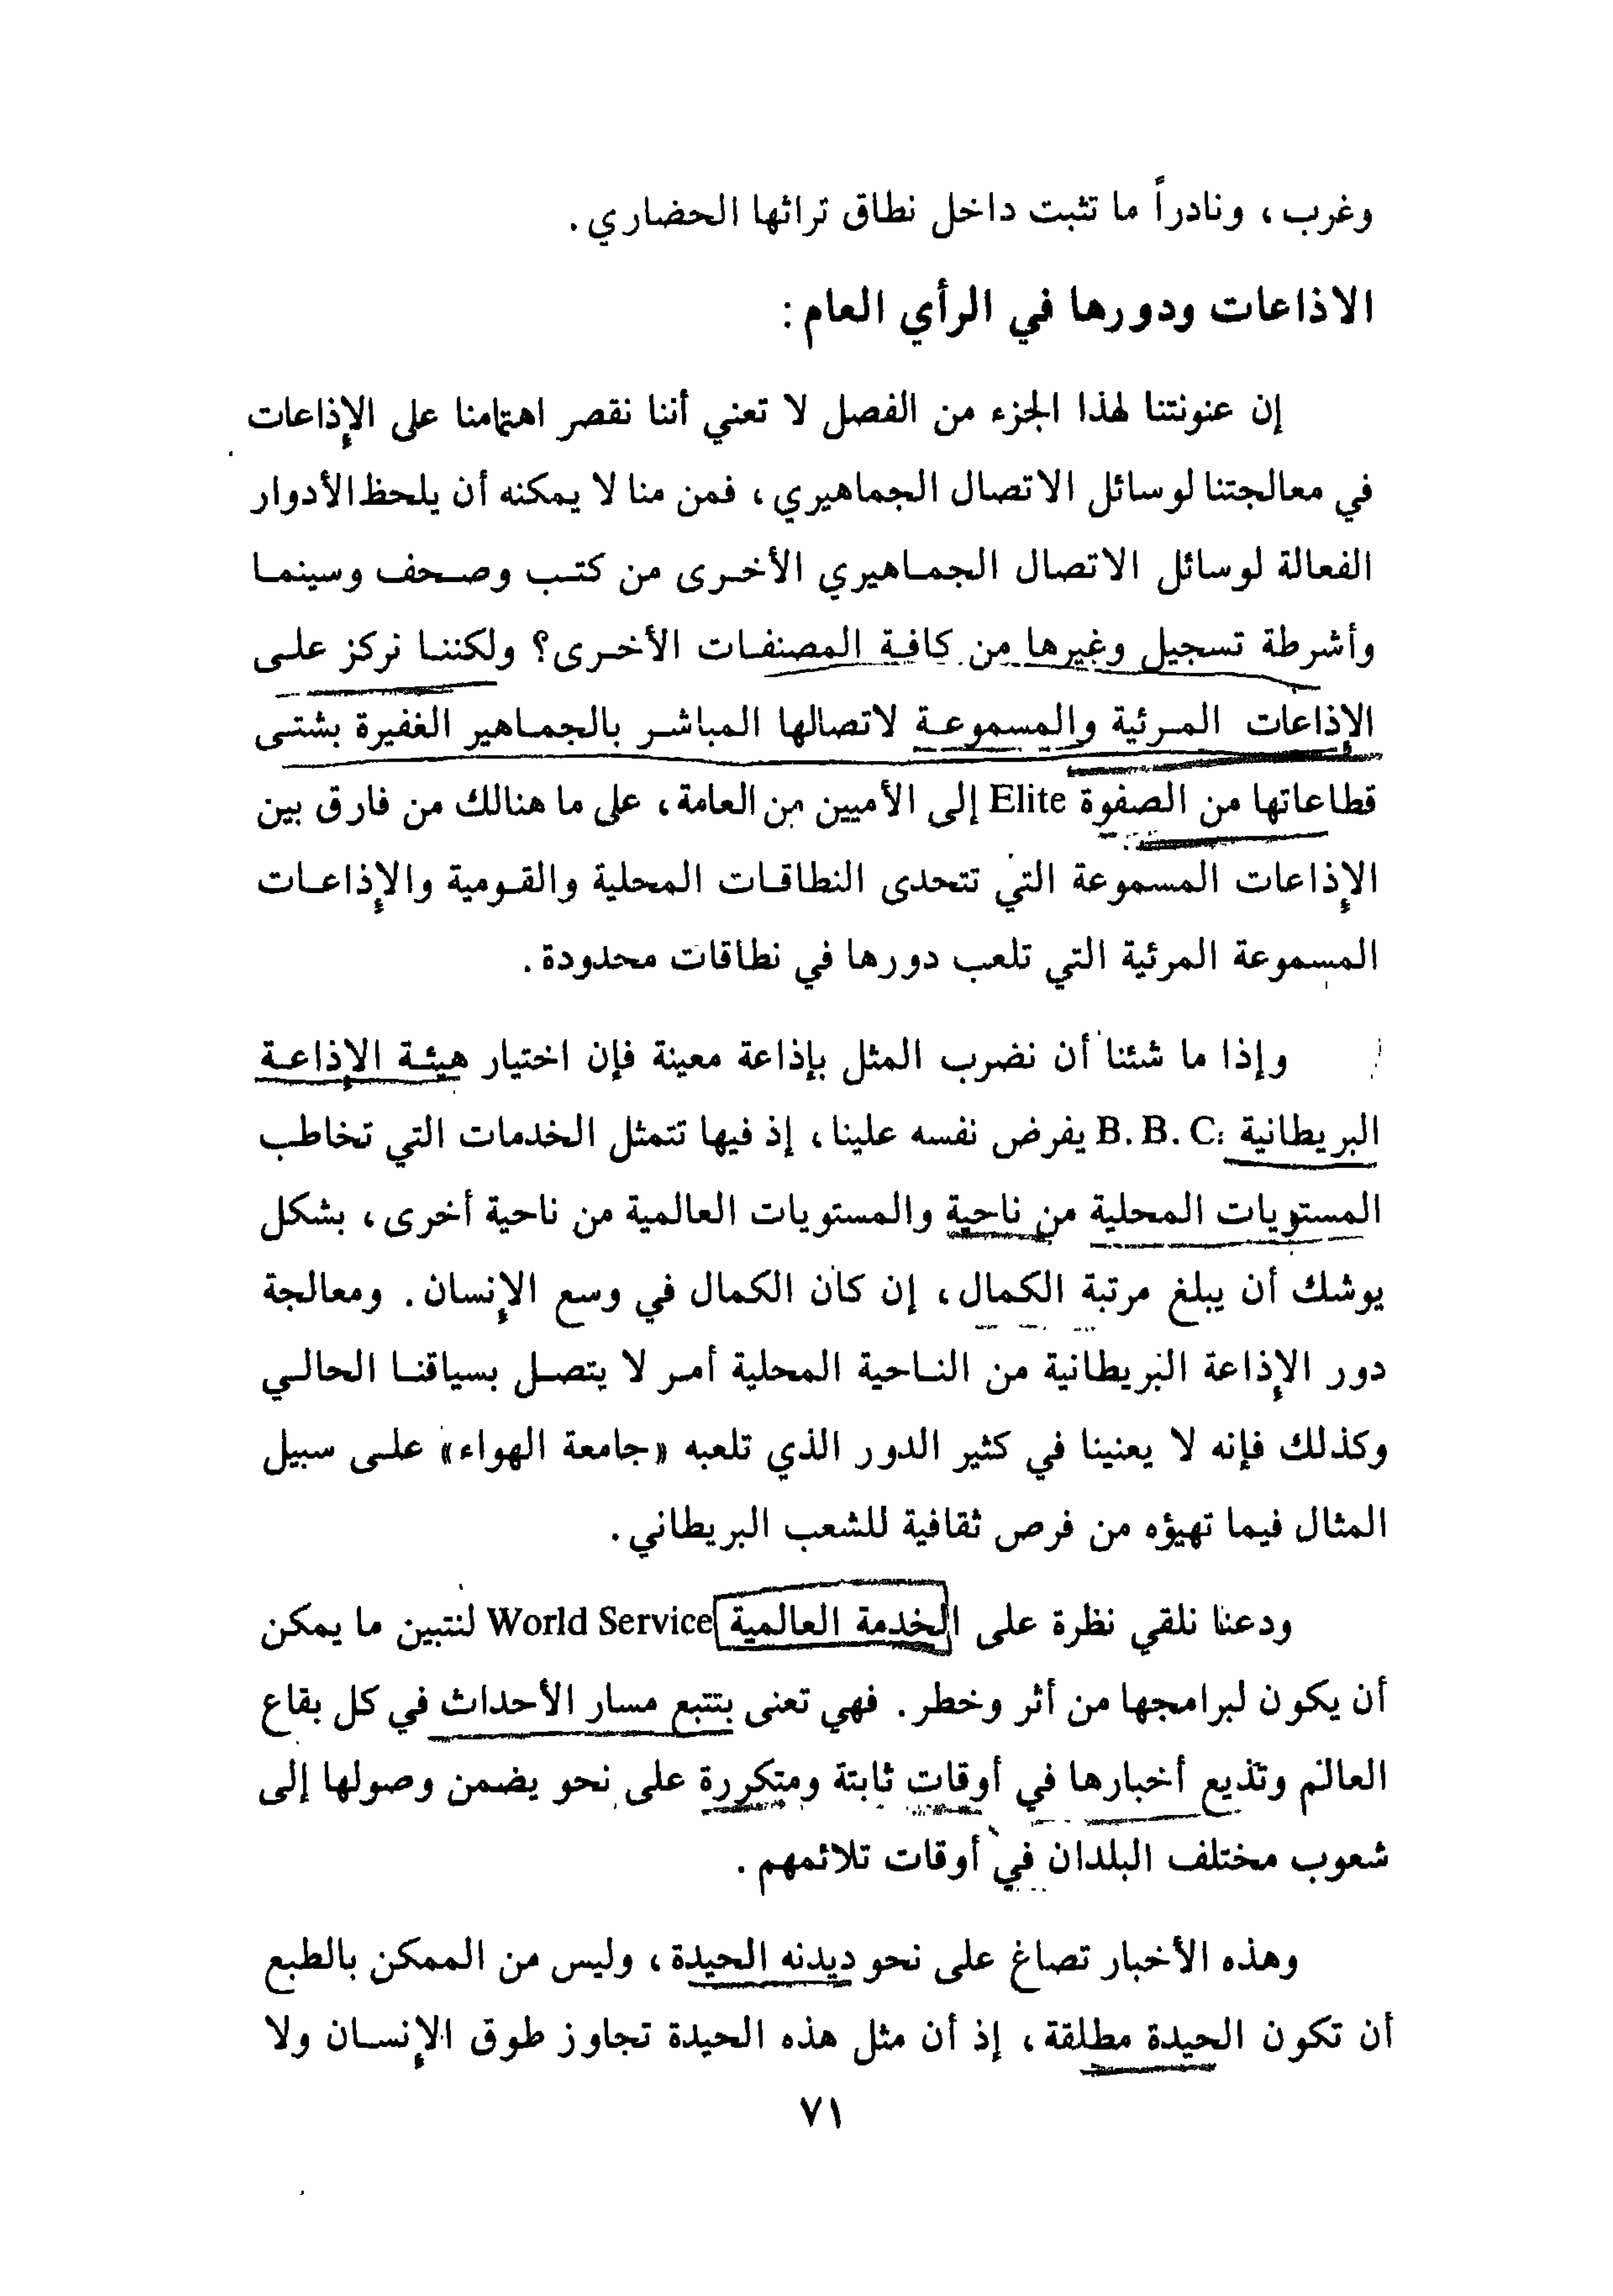 وغرب ، ونادراً ما تثبت داخل نطاق تراثها الحضاري .
الاذاعات ودورها في الرأي العام :
إن عنونتنا لهذا الجزء من الفصل لا تعني أننا نقصر اهتمامنا على الإذاعات
في معالجتنا لوسائل الاتصال الجماهيري ، فمن منا لا يمكنه أن يلحظ الأدوار
الفعالة لوسائل الاتصال الجماهيري الأخرى من كتب وصحف وسينما
وأشرطة تسجيل وغيرها من كافة المصنفات الأخرى؟ ولكننا نركز على
الإذاعات المرئية والمسموعة لاتصالها المباشر بالجماهير الغفيرة بشتى
قطاعاتها من الصفوة Elite إلى الأميين من العامة ، على ما هنالك من فارق بين
الإذاعات المسموعة التي تتحدى النطاقات المحلية والقومية والإذاعات
المسموعة المرئية التي تلعب دورها في نطاقات محدودة .
وإذا ما شئنا أن نضرب المثل بإذاعة معينة فإن اختيار هيئة الإذاعة
البريطانية B. B. C. يفرض نفسه علينا ، إذ فيها تتمثل الخدمات التي تخاطب
المستويات المحلية من ناحية والمستويات العالمية من ناحية أخرى ، بشكل
يوشك أن يبلغ مرتبة الكمال ، إن كان الكمال في وسع الإنسان . ومعالجة
دور الإذاعة البريطانية من الناحية المحلية أمر لا يتصل بسياقنا الحالي
وكذلك فإنه لا يعنينا في كثير الدور الذي تلعبه «جامعة الهواء» على سبيل
المثال فيما تهيؤه من فرص ثقافية للشعب البريطاني .
ودعنا نلقي نظرة على الخدمة العالمية World Service لنتبين ما يمكن
أن يكون لبرامجها من أثر وخطر . فهي تعنى بتتبع مسار الأحداث في كل بقاع
العالم وتذيع أخبارها في أوقات ثابتة ومتكررة على نحو يضمن وصولها إلى
شعوب مختلف البلدان في أوقات تلائمهم .
وهذه الأخبار تصاغ على نحو ديدنه الحيدة ، وليس من الممكن بالطبع
أن تكون الحيدة مطلقة ، إذ أن مثل هذه الحيدة تجاوز طوق الإنسان ولا
٧١